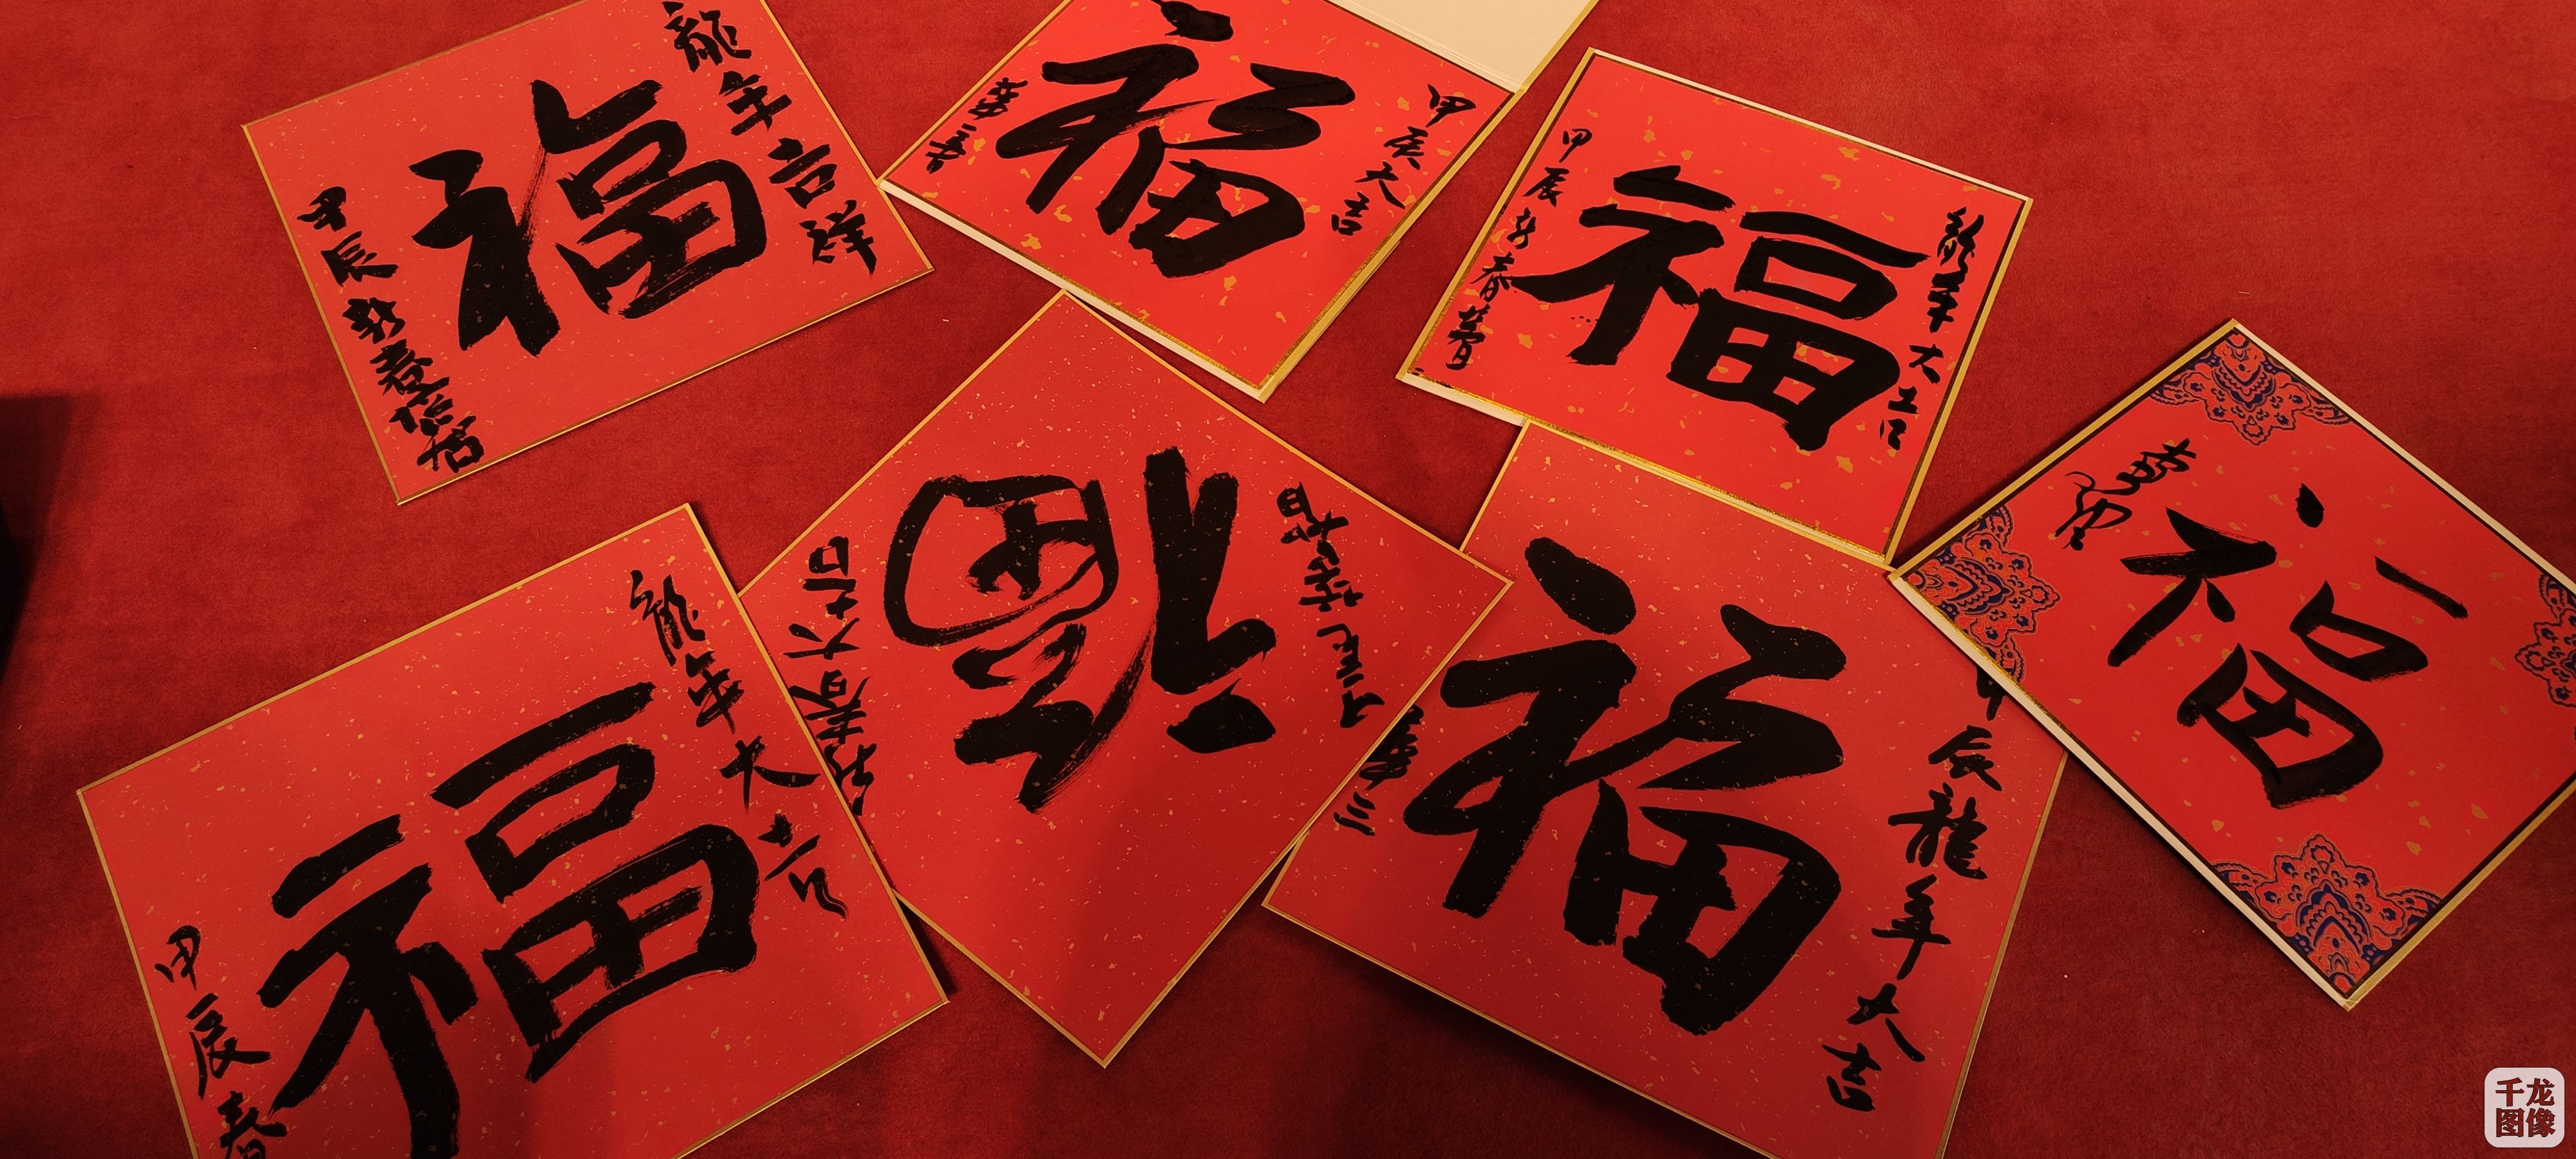 龍年吉祥
福
甲辰新春
甲辰大吉
福
龍年大吉
福
甲辰新春
福
龍年大吉
福
甲辰春
新春大吉
福
甲辰龍年大吉
福
千龙
图像